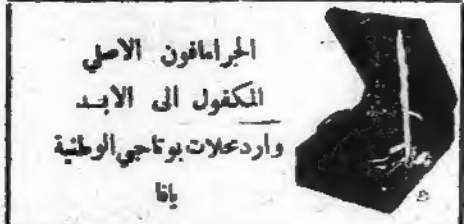 الجرامافون الاصلي
المكفول الى الابد
وارد محلات بوتاجي الوطنية
يافا